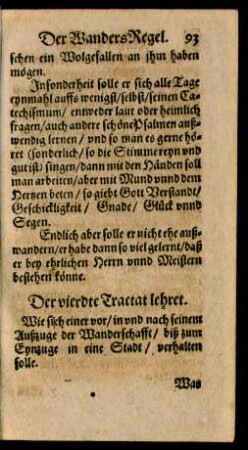 Der Wanders Regel. 93
schen ein Wolgefallen an jhm haben
mögen.
Insonderheit solle er sich alle Tage
eynmahl auffs wenigst/selbst/seinen Ca-
techismum/ entweder laut oder heimlich
fragen/auch andere schöne Psalmen auß-
wendig lernen/ vnd so man es gerne hö-
ret (sonderlich/so die Stimme reyn vnd
gut ist) singen/dann mit den Händen soll
man arbeiten/aber mit Mund vnnd dem
Hertzen beten/so giebt Gott Verstandt/
Geschickligkeit/ Gnade/ Glück vnnd
Segen.
Endlich aber solle er nicht ehe auß-
wandern/er habe dann so viel gelernt/daß
er bey ehrlichen Herrn vnnd Meistern
bestehen könne.
Der vierdte Tractat lehret.
Wie sich einer vor/in vnd nach seinem
Außzuge der Wanderschafft/ biß zum
Eynzuge in eine Stadt/ verhalten
solle.
Was